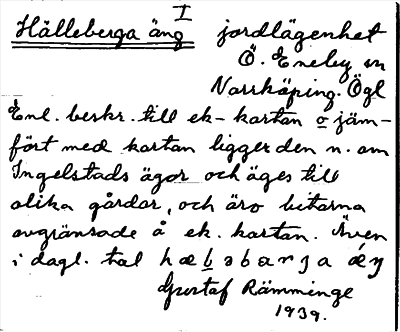 I
Hälleberga äng jordlägenhet
Ö. Eneby sn
Norrköping. Ögl
Enl. beskr. till ek-kartan o jäm-
fört med kartan ligger den n. om
Ingelstads ägor och äges till
olika gårdar, och äro bitarna
avgränsade å ek. kartan. Även
i dagl. tal
Gustaf Rämminge
1939.